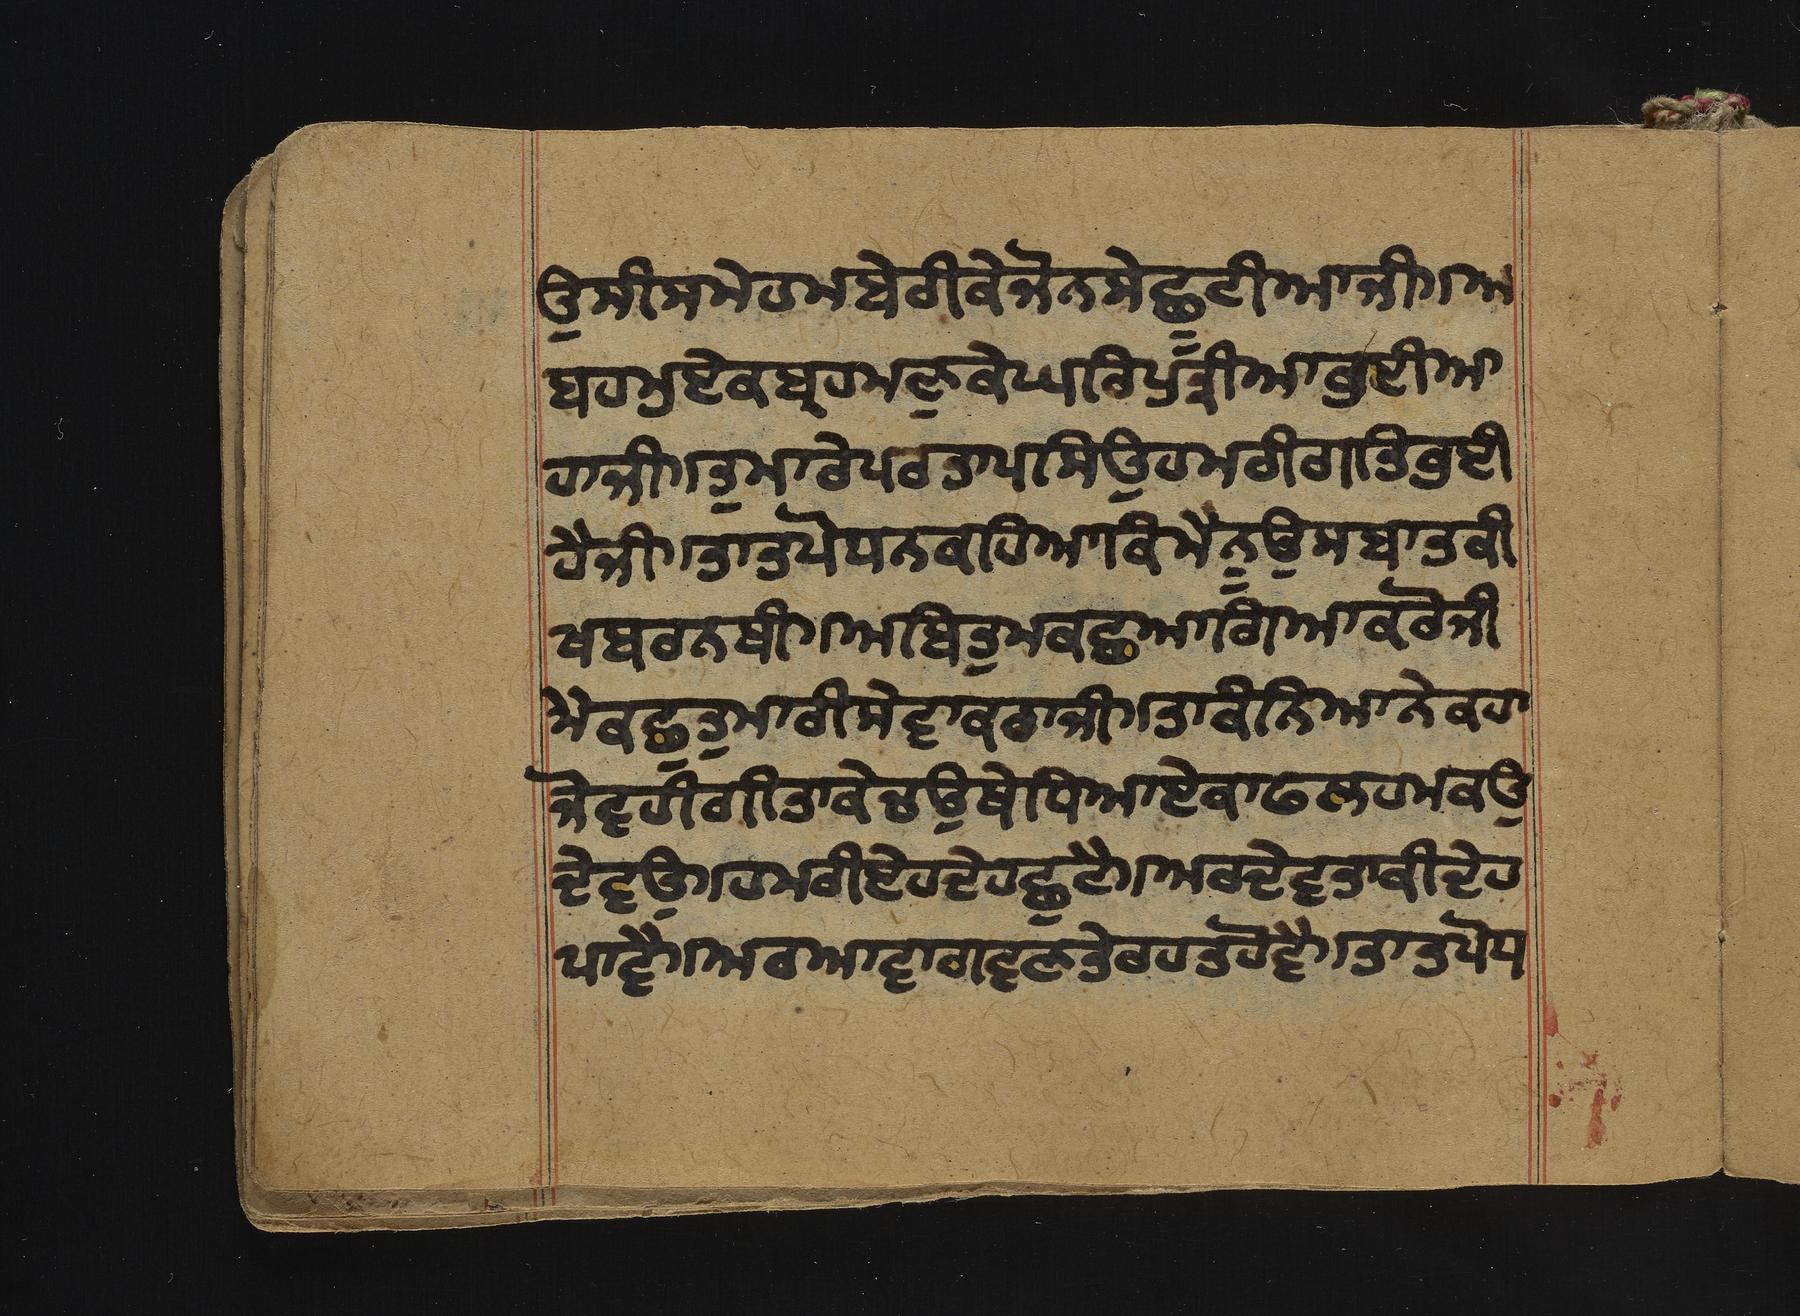 ਉਸੀਸਮੇਹਮਬੇਰੀਕੇਜੋਨਸੇਛੂਟੀਆਜੀ।ਅ
ਬਹਮੁਏਕਬ੍ਰਹਮਣੁਕੇਘਰਿਪੁਤ੍ਰੀਆਹੁਈਆ
ਹਾਜੀ।ਤੁਮਾਰੇਪਰਤਾਪਸਿਉਹਮਰੀਗਤਿਹੁਈ
ਹੈਜੀ।ਤਾਤਪੋਧਨਕਹਿਆਕਿਮੈਨੂਉਸਬਾਤਕੀ
ਖਬਰਨਥੀ।ਅਬਿਤੁਮਕਛੁਆਗਿਆਕਰੋਜੀ
ਮੈਕਛੁਤੁਮਾਰੀਸੇਵਾਕਰਾਜੀ।ਤਾਕੰਨਿਆਨੇਕਹਾ
ਜੋਵਹੀਗੀਤਾਕੇਚਉਥੇਧਿਆਏਕਾਫਲਹਮਕਉ
ਦੇਵਉ।ਹਮਰੀਏਹਦੇਹਛੁਟੈ।ਅਰਦੇਵਤਾਕੀਦੇਹ
ਪਾਵੈ।ਅਰਆਵਾਗਵਣਤੇਰਹਤਹੋਵੈ।ਤਾਤਪੋਧ